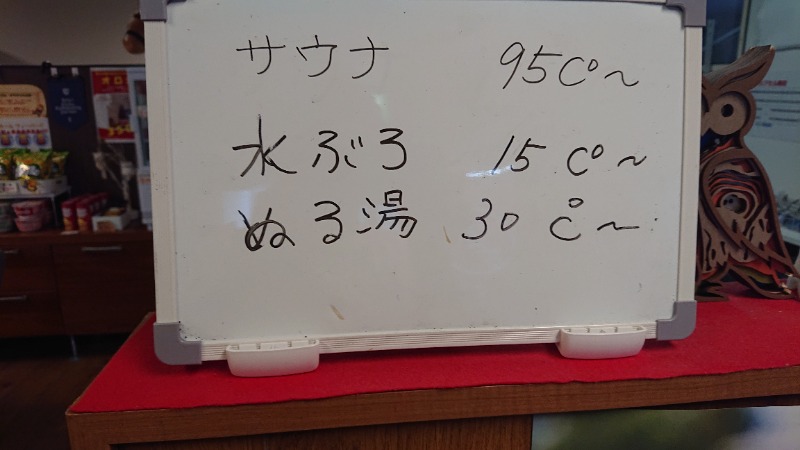 サウナ 95C°〜
水ぶろ 15C°〜
ぬる湯 30C°〜